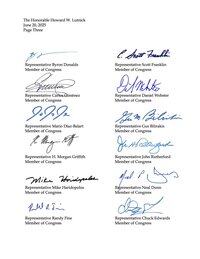 The Honorable Howard W. Lutnick
June 20, 2025
Page Three
Representative Byron Donalds
Member of Congress
C. Scott Franklin
Representative Scott Franklin
Member of Congress
Representative Carlos Gimenez
Member of Congress
Representative Daniel Webster
Member of Congress
Representative Mario Diaz-Balart
Member of Congress
Gus M. Bilirakis
Representative Gus Bilirakis
Member of Congress
Representative H. Morgan Griffith
Member of Congress
John H. Rutherford
Representative John Rutherford
Member of Congress
Mike Haridopolos
Representative Mike Haridopolos
Member of Congress
Neal P. Dunn
Representative Neal Dunn
Member of Congress
Representative Randy Fine
Member of Congress
Representative Chuck Edwards
Member of Congress